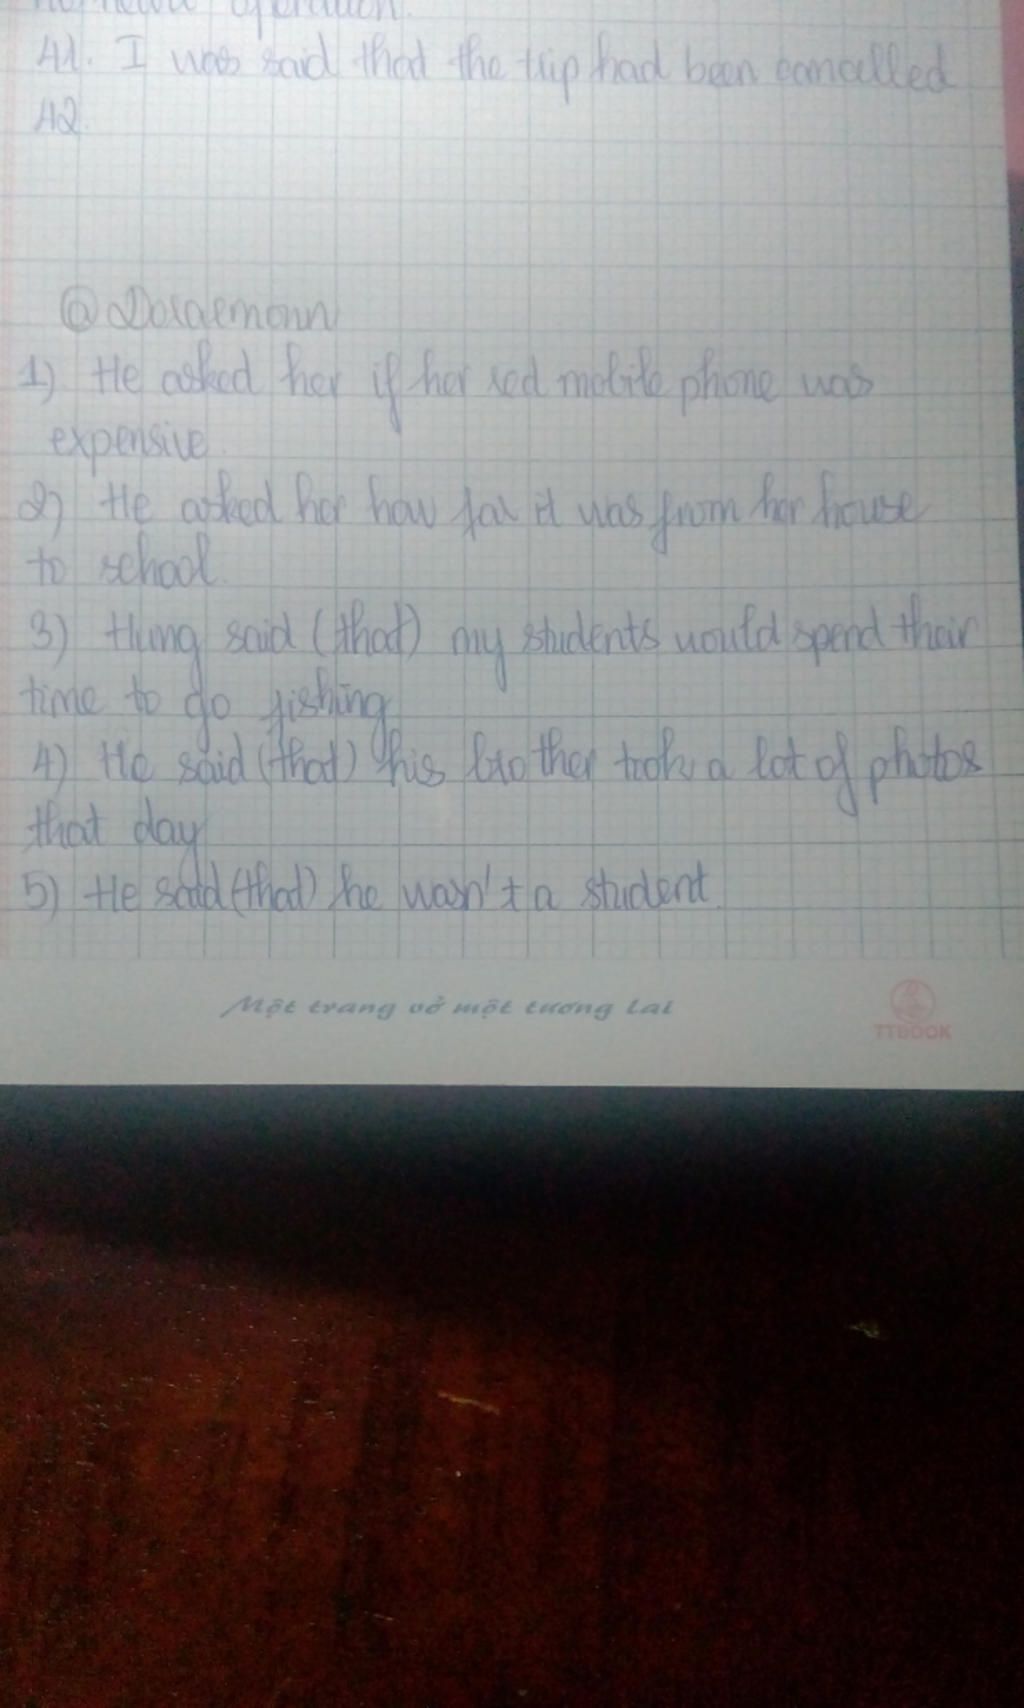 operation.
41. I was said that the trip had been cancelled
42.
@Doraemonn
1) He asked her if her red mobile phone was
expensive.
2) He asked her how far it was from her house
to school.
3) Hung said (that) my students would spend their
time to go fishing
4) He said (that) his brother took a lot of photos
that day
5) He said (that) he wasn't a student.
Một trang vở một tương lai
TTBOOK